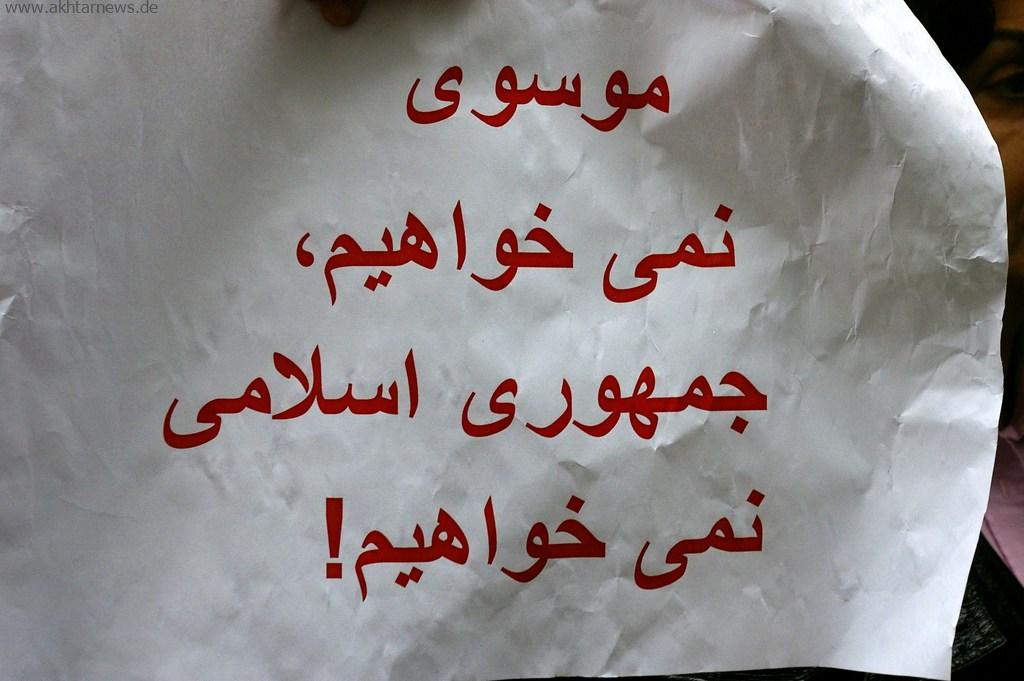 www.akhtarnews.de
موسوی
نمی خواهیم،
جمهوری اسلامی
نمی خواهیم!